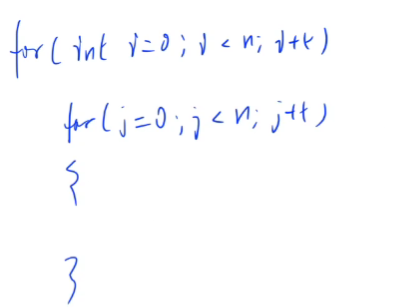 for( int i=0; i < n; i++)
for( j=0; j < n; j++)
{
}